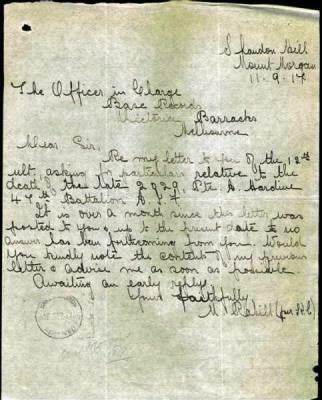 Struck Oil
Mount Morgan
11-9-17
The Officer in Charge
Base Records
Victoria Barracks
Melbourne
Dear Sir,
Re my letter to you of the 12th
ult, asking for particulars relative to the
death of the late 2929, Pte. A. Hardine
47th Battalion A.I.F.
It is over a month since this letter was
posted to you & up to the present date to no
answer has been forthcoming from you. Would
you kindly note the contents of my previous
letter & advise me as soon as possible.
Awaiting an early reply,
Yours faithfully
M. Rahill (per